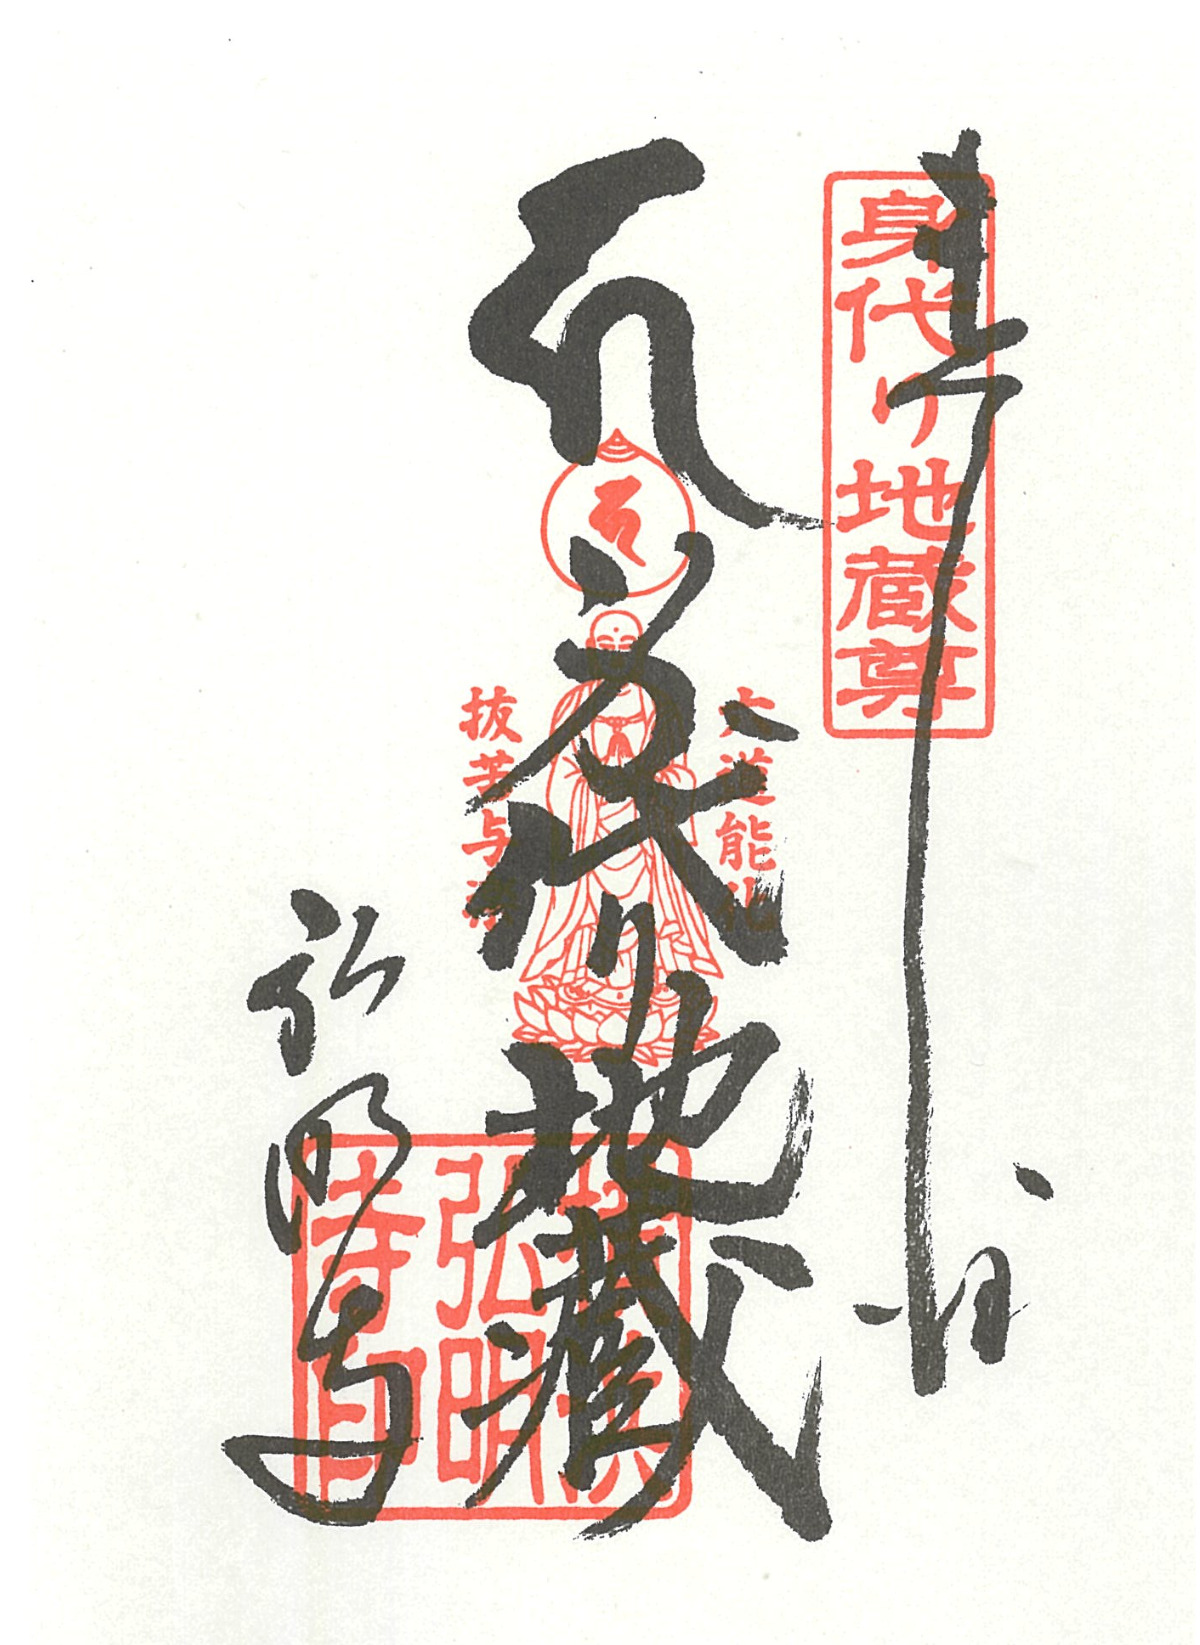 奉拝
日
身代り地蔵尊
身代り地蔵
六道能化
抜苦与楽
弘明寺
弘明
寺印